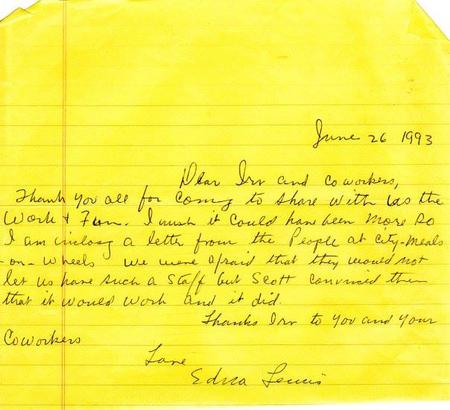 June 26 1993
Dear Irv and Coworkers,
Thank you all for Coming to share with us the
Work & Fun. I wish it could have been more so
I am inclosg a letter from the People at City-Meals
-on-Wheels - we were afraid that they would not
let us have such a Staff but Scott convinced them
that it would work and it did.
Thanks Irv to you and your
Coworkers
Love
Edna Lewis